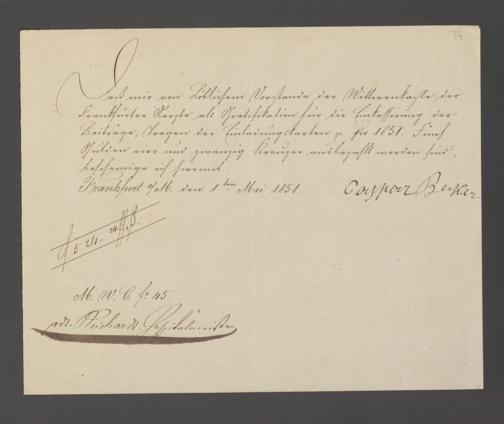 34
Daß mir von Löblichem Vorstande der Wittwenkasse der
Frankfurter Aerzte als Gratifikation für die Einkassirung der
Beiträge, Tragen der Einladungskarten p. für 1851. Fünf
Gulden vier und zwanzig Kreuzer ausbezahlt worden sind,
bescheinige ich hiermit.
Frankfurt a/M. den 1ten Mai 1851. Caspar Becker
f 5. 24.
M. W. C. fo 45.
Reichard.